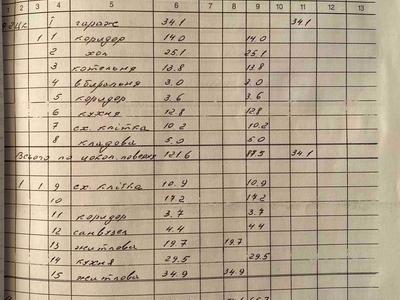 1 2 3 4 5 6 7 8 9 10 11 12 13
I гараж 34.1 34.1
1 1 коридор 14.0 14.0
2 хол 25.1 25.1
3 котельня 13.8 13.8
4 вбиральня 3.0 3.0
5 коридор 3.6 3.6
6 кухня 12.8 12.8
7 сх. клітка 10.2 10.2
8 кладова 5.0 5.0
Всього по цокол. поверху 121.6 87.5 34.1
1 1 9 сх. клітка 10.9 10.9
10 17.2 17.2
11 коридор 3.7 3.7
12 санвузел 4.4 4.4
13 житлова 19.7 19.7
14 кухня 29.5 29.5
15 житлова 34.9 34.9